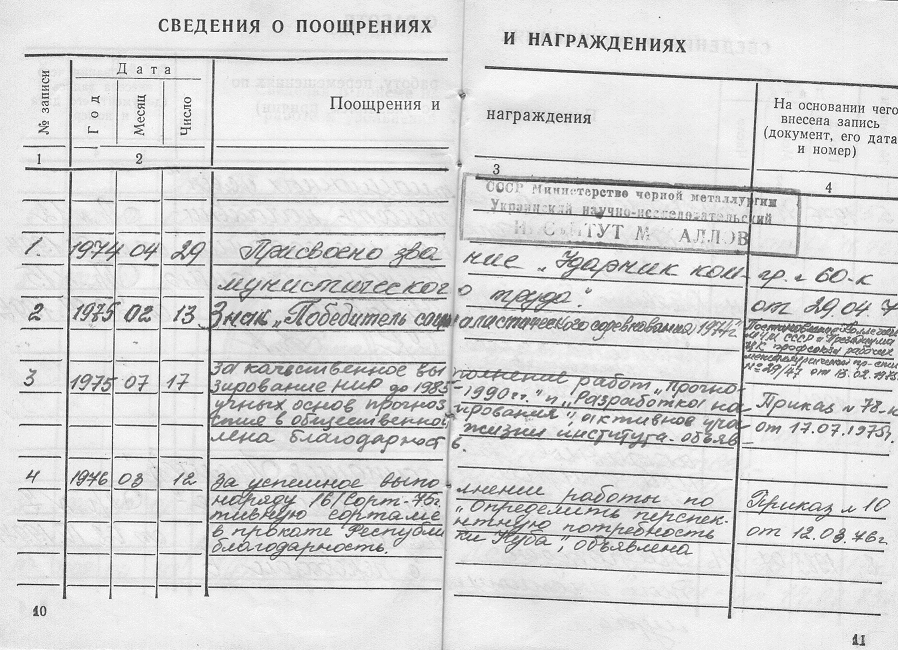 СВЕДЕНИЯ О ПООЩРЕНИЯХ И НАГРАЖДЕНИЯХ
№ записи
Дата
Год
Месяц
Число
Поощрения и награждения
На основании чего
внесена запись
(документ, его дата
и номер)
1 2 3 4
СССР Министерство черной металлургии
Украинский научно-исследовательский
ИНСТИТУТ МЕТАЛЛОВ
1. 1974 04 29 Присвоено звание „Ударник ком- гр. 60-к
мунистического труда“. от 29.04.7
2 1975 02 13 Знак „Победитель социалистического соревнования 1974г“
Постановление Коллегии
МЧМ СССР и Президиума
ЦК профсоюза рабочих
металлургической пр-сти
№ 29/47 от 13.02.1975
3 1975 07 17 За качественное выполнение работ „Прогно-
зирование НИР до 1985-1990 гг.“ и „Разработка на- Приказ № 78-к
учных основ прогнозирования“, активное уча- от 17.07.1975г.
стие в общественной жизни института объяв-
лена благодарность.
4 1976 03 12 За успешное выполнение работы по Приказ № 10
наряду 16/Сорт-75. „Определить перспек- от 12.03.76г.
тивную сортаментную потребность
в прокате Республики Куба“, объявлена
благодарность.
10
11